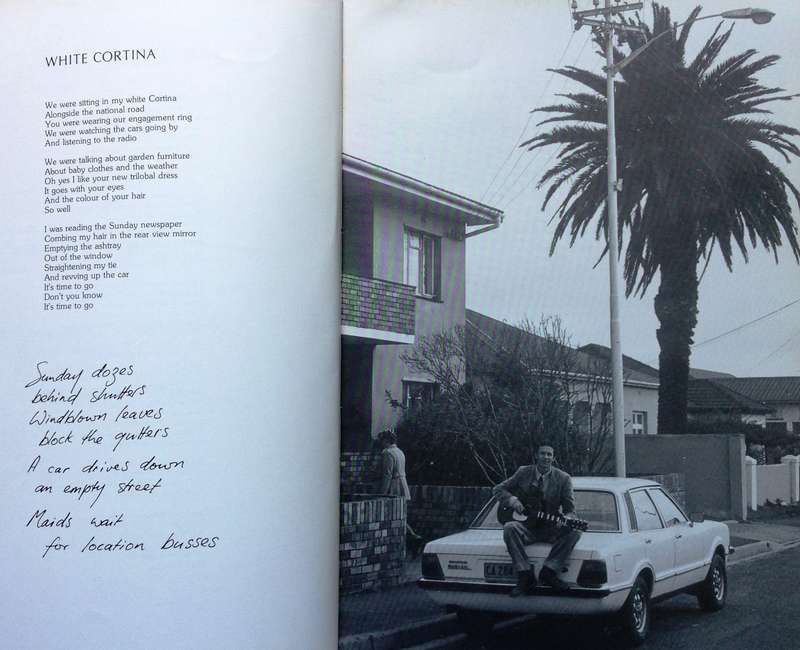 WHITE CORTINA
We were sitting in my white Cortina
Alongside the national road
You were wearing our engagement ring
We were watching the cars going by
And listening to the radio
We were talking about garden furniture
About baby clothes and the weather
Oh yes I like your new trilobal dress
It goes with your eyes
And the colour of your hair
So well
I was reading the Sunday newspaper
Combing my hair in the rear view mirror
Emptying the ashtray
Out of the window
Straightening my tie
And revving up the car
It's time to go
Don't you know
It's time to go
Sunday dozes
behind shutters
Windblown leaves
block the gutters
A car drives down
an empty street
Maids wait
for location busses